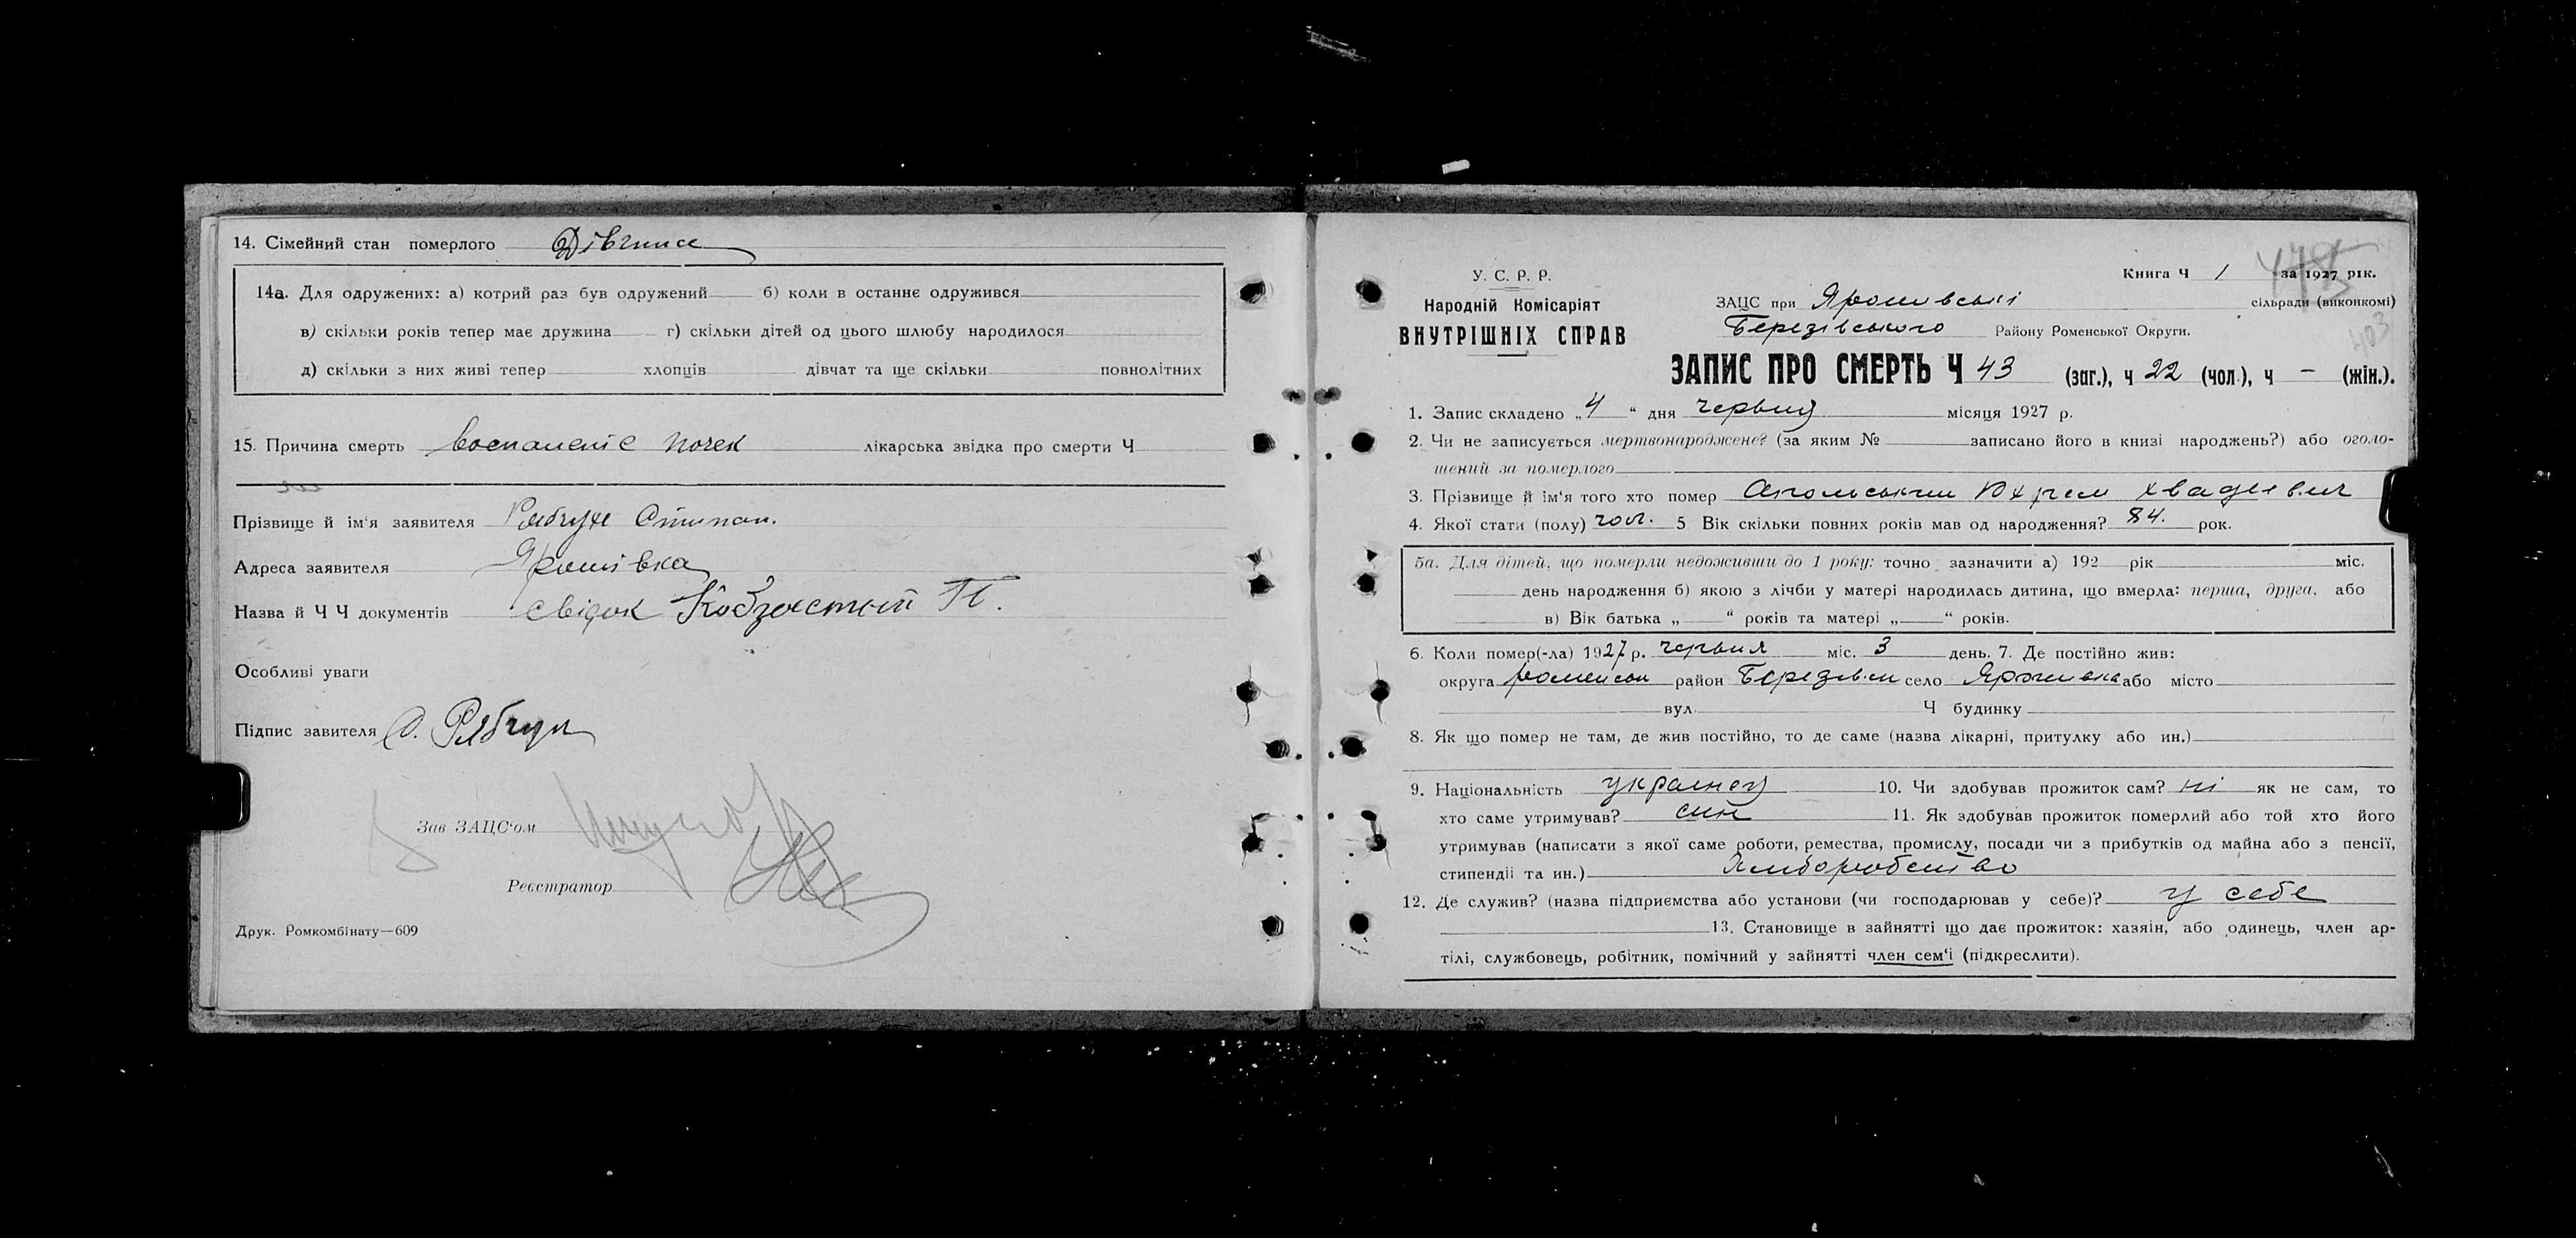 14. Сімейний стан померлого Дівчина
14а. Для одружених: а) котрий раз був одружений б) коли в останнє одружився
в) скільки років тепер має дружина г) скільки дітей од цього шлюбу народилося
д) скільки з них живі тепер хлопців дівчат та ще скільки повнолітних
15. Причина смерть воспаленіе почек лікарська звідка про смерти Ч
Прізвище й ім'я заявителя Рябчун Степан.
Адреса заявителя Ярошівка
Назва й Ч Ч документів свідок П.
Особливі уваги
Підпис завителя С. Рябчун
Зав ЗАЦС'ом
Реєстратор
Друк. Ромкомбінату—609
У. С. Р. Р.
Народній Комісаріят
ВНУТРІШНІХ СПРАВ
Книга Ч 1 за 1927 рік.
ЗАЦС при Ярошивські сільради (виконкомі)
Березівського Району Роменської Округи.
403
ЗАПИС ПРО СМЕРТЬ Ч 43 (заг.), ч 22 (чол.), ч — (жін.).
1. Запис складено „4" дня червня місяця 1927 р.
2. Чи не записується мертвонароджене? (за яким № записано його в книзі народжень?) або оголо-
шений за померлого
3. Прізвище й ім'я того хто помер
4. Якої стати (полу) чол. 5 Вік скільки повних років мав од народження? 84. рок.
5а. Для дітей, що померли недоживши до 1 року: точно зазначити а) 192 рік міс.
день народження б) якою з лічби у матері народилась дитина, що вмерла: перша, друга, або
в) Вік батька „ " років та матері „ " років.
6. Коли помер(-ла) 1927 р. червня міс. 3 день. 7. Де постійно жив:
округа роменськ район Березівськ село Ярошивка або місто
вул. Ч будинку
8. Як що помер не там, де жив постійно, то де саме (назва лікарні, притулку або ин.)
9. Національність українец 10. Чи здобував прожиток сам? ні як не сам, то
хто саме утримував? син 11. Як здобував прожиток померлий або той хто його
утримував (написати з якої саме роботи, ремества, промислу, посади чи з прибутків од майна або з пенсії,
стипендії та ин.) Хлиборобство
12. Де служив? (назва підприємства або установи (чи господарював у себе)? у себе
13. Становище в зайнятті що дає прожиток: хазяін, або одинець, член ар-
тілі, службовець, робітник, помічний у зайнятті член сем'ї (підкреслити).